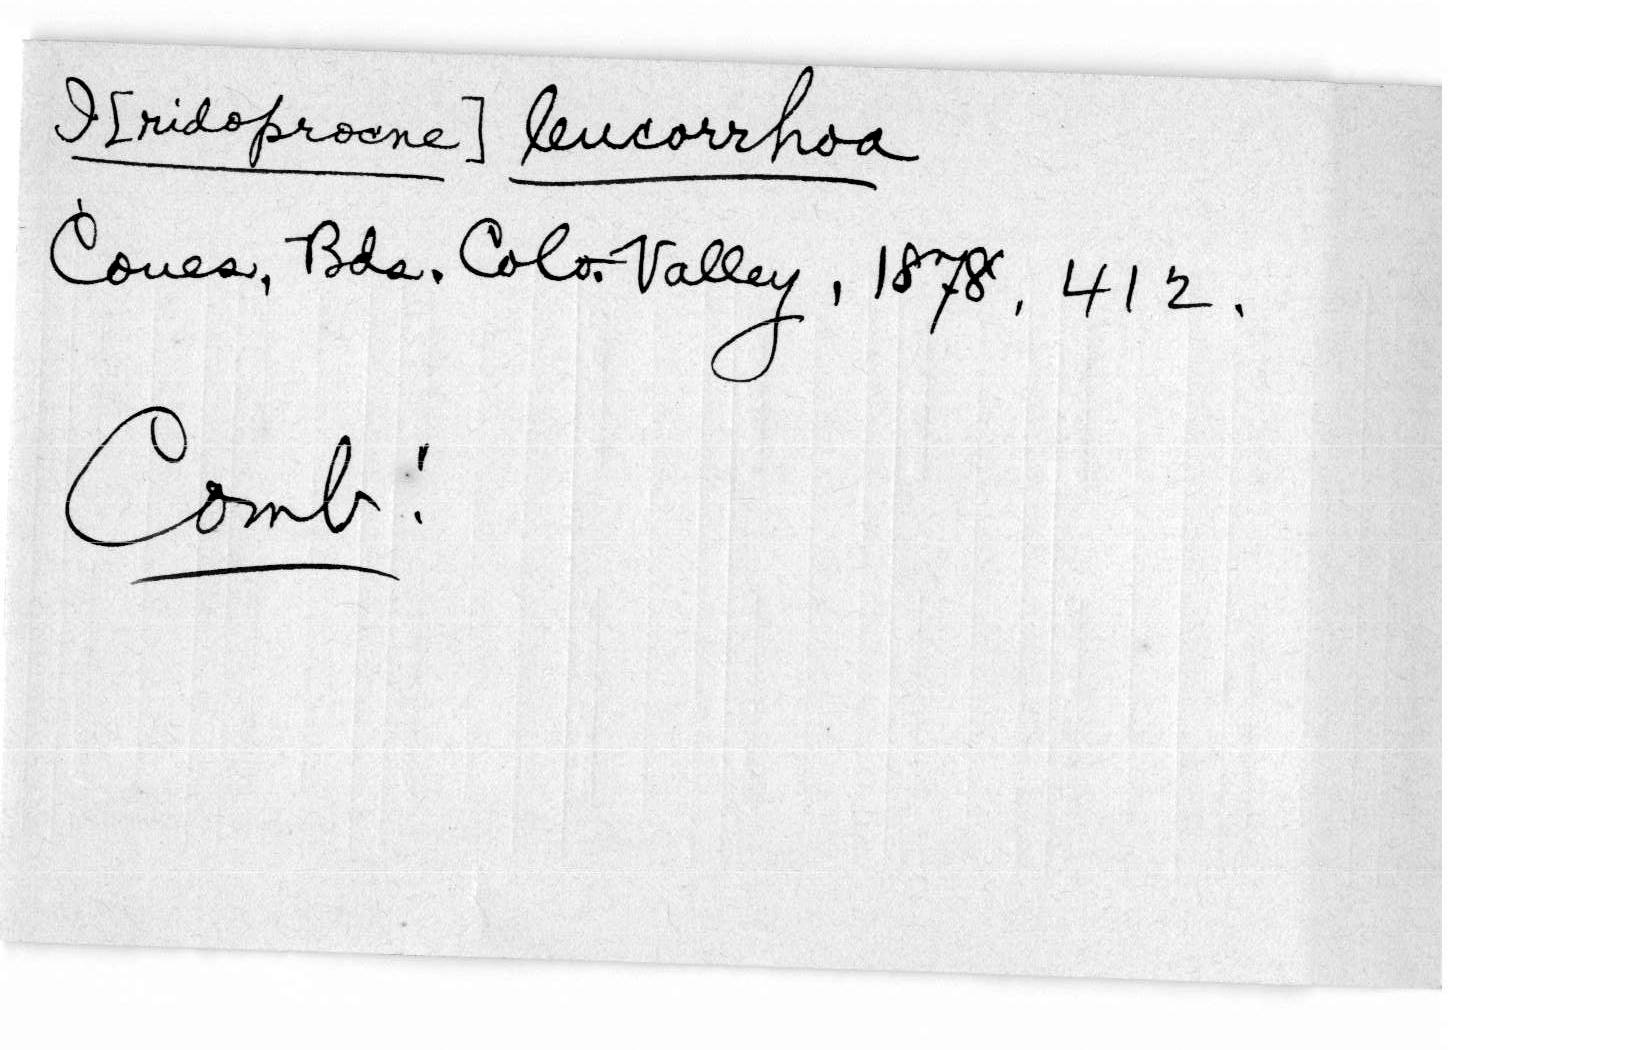 I[ridoprocne] leucorrhoa
Coues, Bds. Colo. Valley, 1878, 412.
Comb!